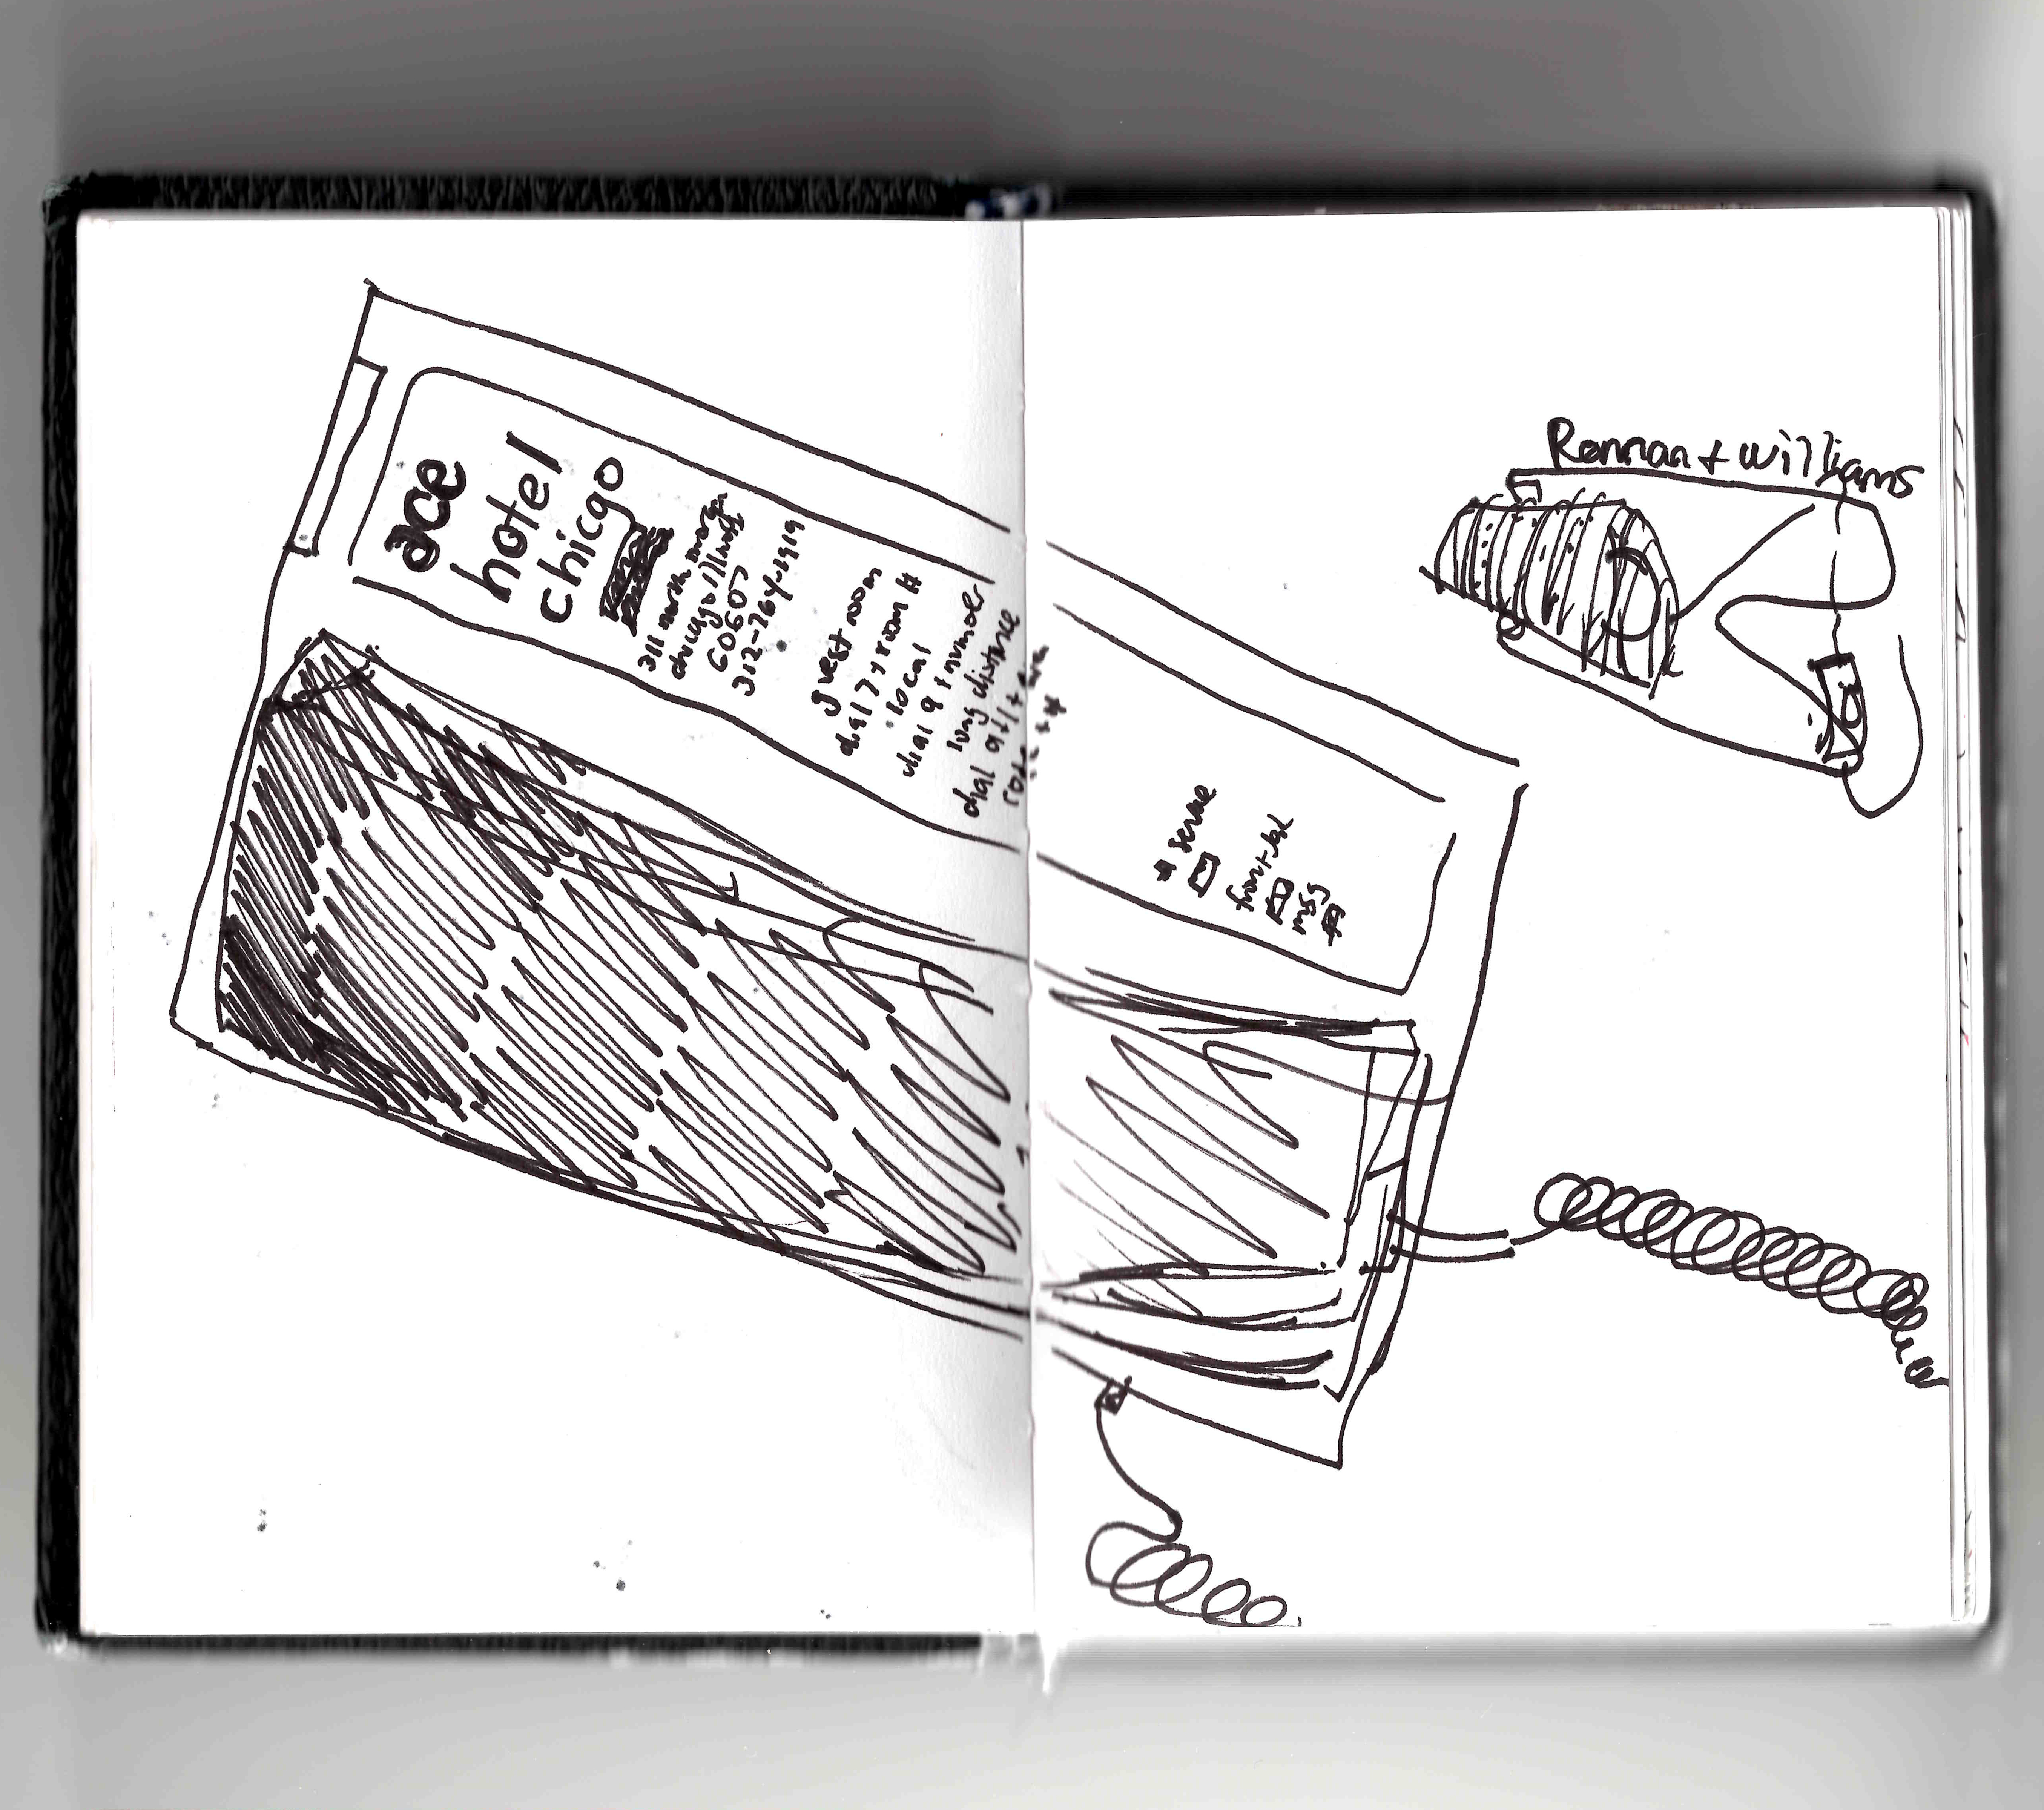 ace
hotel
chicgo
311 north morgan
chicago illinois
60607
312-764-1919
guest room
dial 7 + room #
local
dial 9 + number
long distance
dial 9 + 1 + area
code + #
* service
front desk
msg
Ronman + Williams